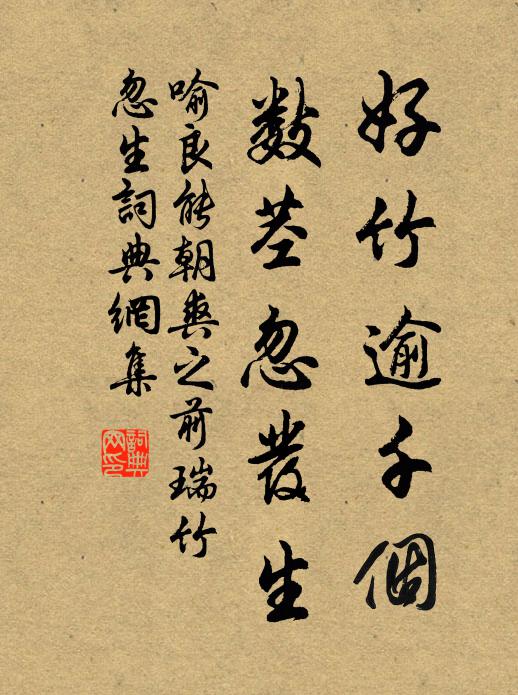 好竹逾千個
數莖忽發生
喻良能朝爽之前瑞竹
忽生詞典網集
詞典網印